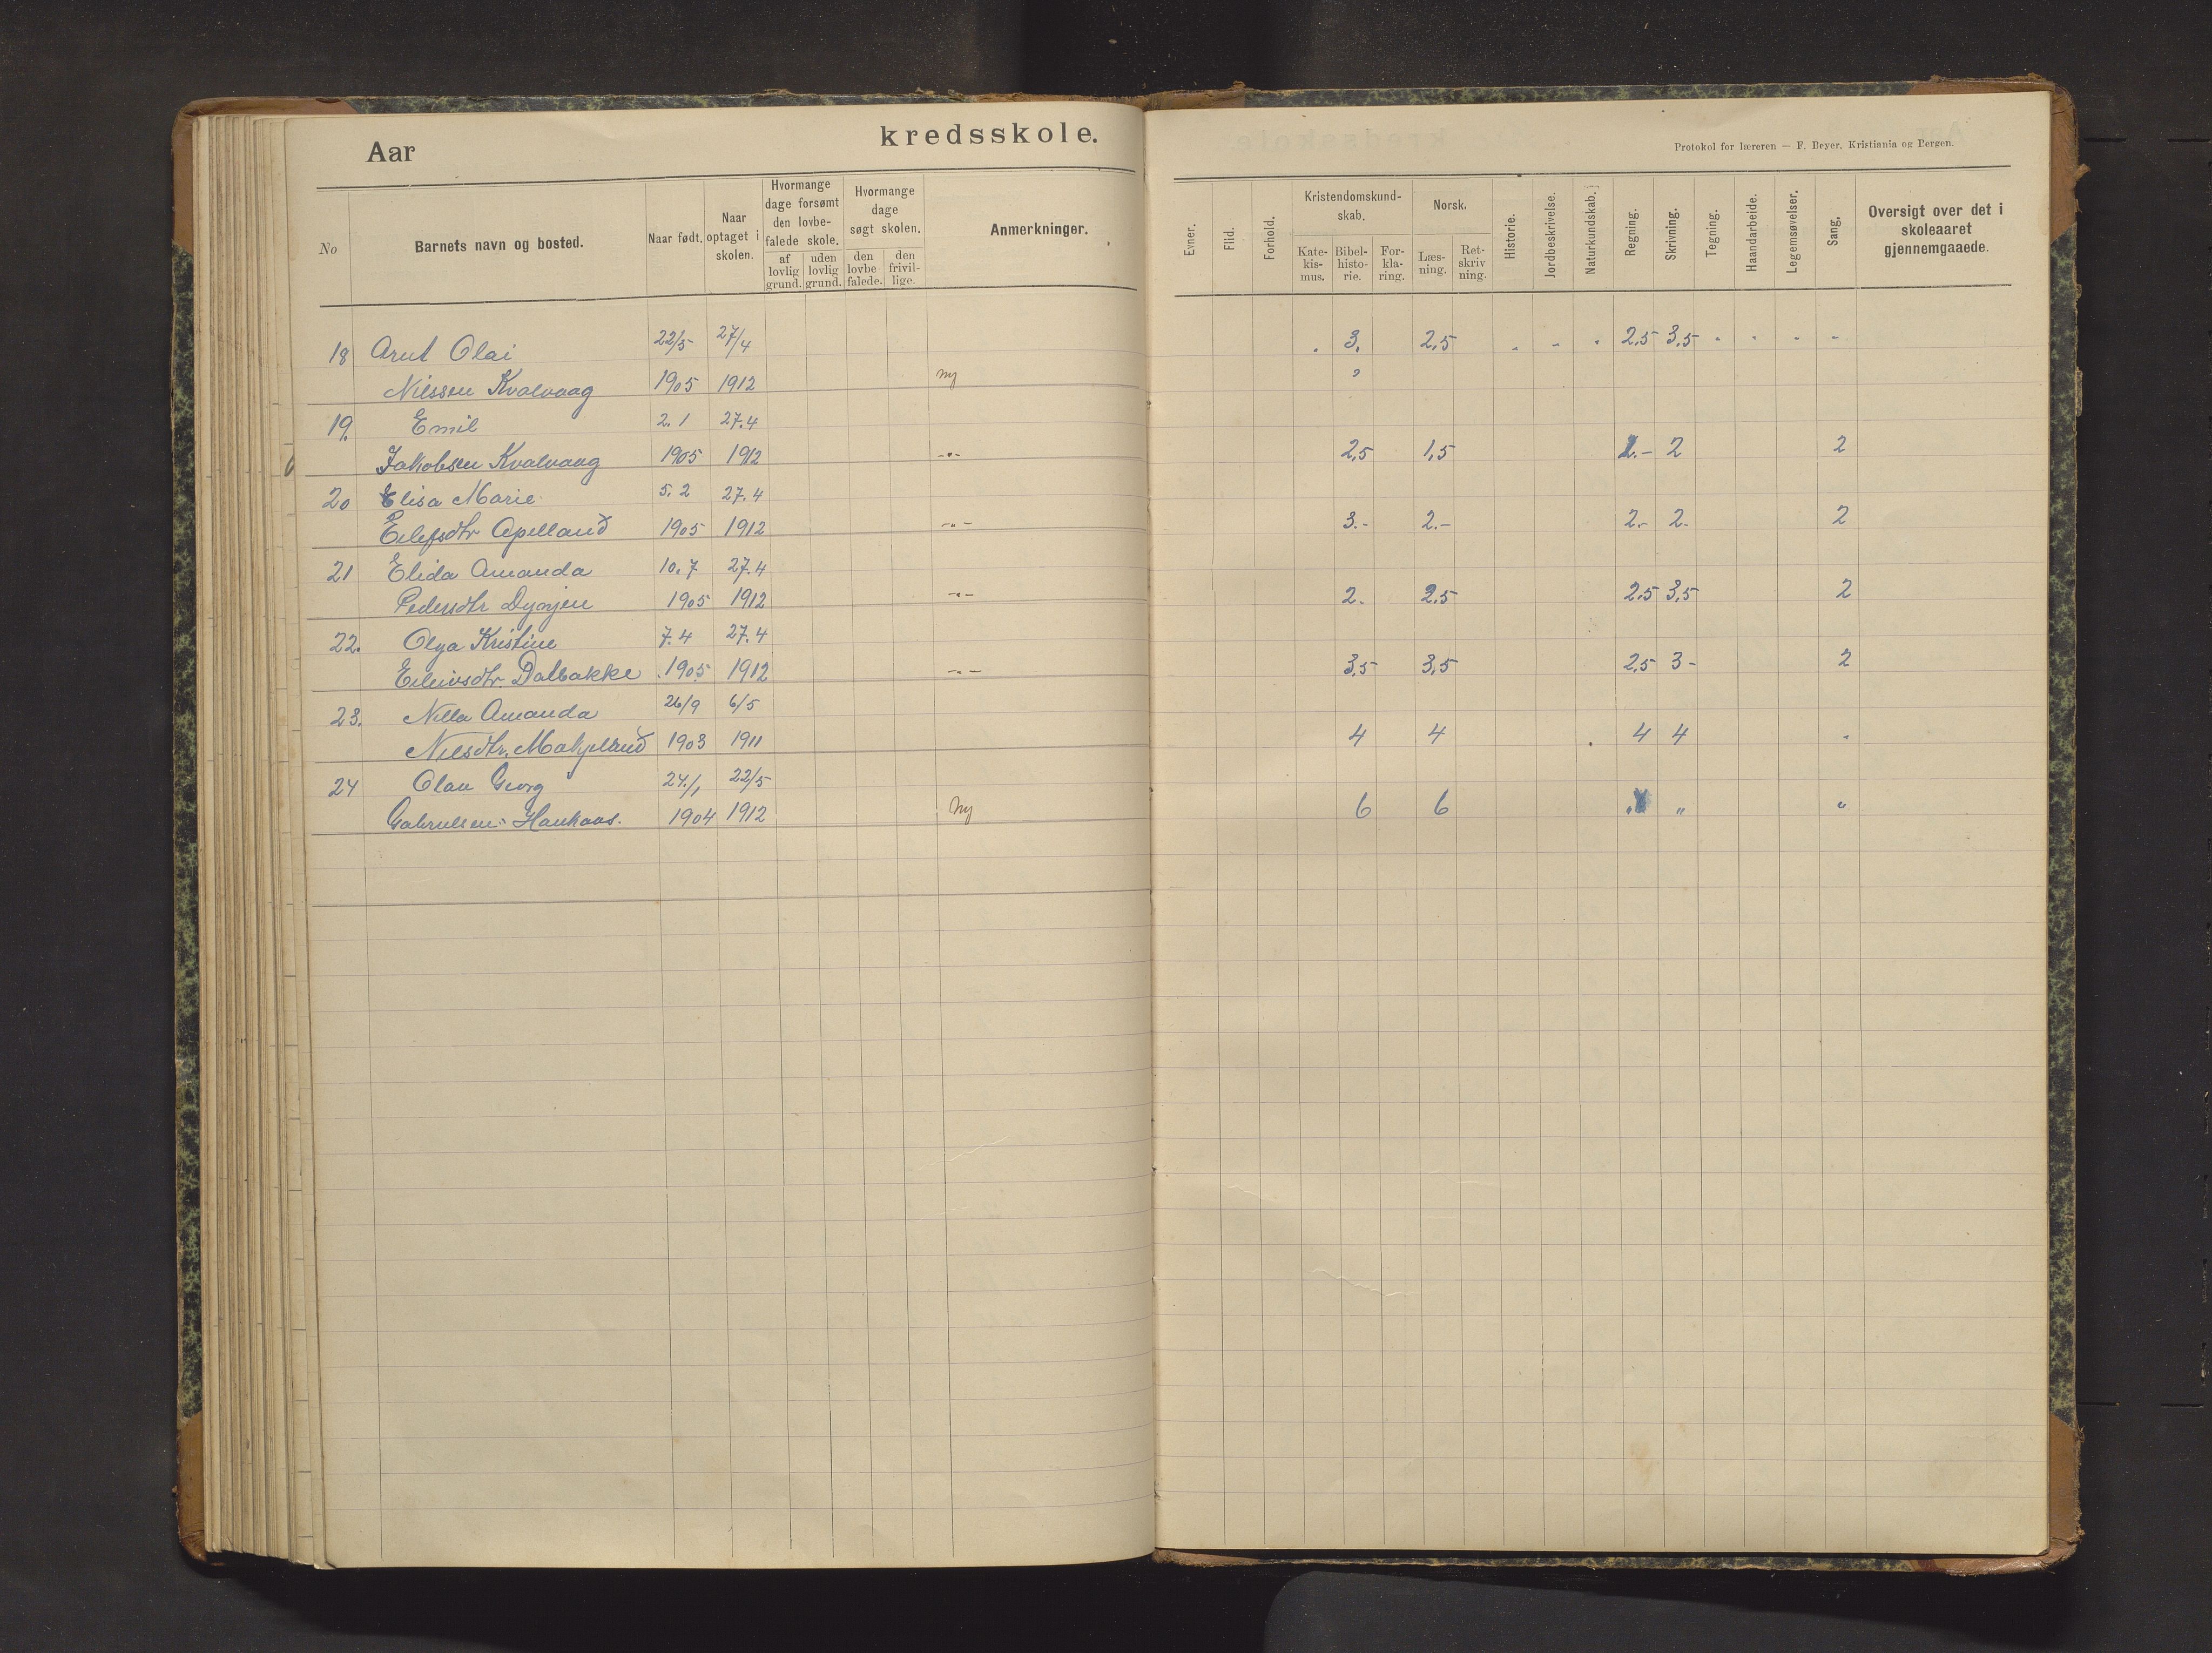 Aar
kredsskole.
Protokol for læreren — F. Beyer, Kristiania og Bergen.
No
Barnets navn og bosted.
Naar født.
Naar optaget i skolen.
Hvormange dage forsømt den lovbefalede skole.
af lovlig grund.
uden lovlig grund.
Hvormange dage søgt skolen.
den lovbefalede.
den frivillige.
Anmerkninger.
Evner.
Flid.
Forhold.
Kristendomskundskab.
Katekismus.
Bibelhistorie.
Forklaring.
Norsk.
Læsning.
Retskrivning.
Historie.
Jordbeskrivelse.
Naturkundskab.
Regning.
Skrivning.
Tegning.
Haandarbeide.
Legemsøvelser.
Sang.
Oversigt over det i skoleaaret gjennemgaaede.
18 Arnt Olai 22/5 27/4 3. 2,5 2,5 3,5
Nilssen Kvalvaag 1905 1912 ny
19. Emil 2.1 27.4
Jakobsen Kvalvaag 1905 1912 -"- 2,5 1,5 2.- 2 2
20 Elisa Marie 5.2 27.4
Eilefsdtr Apelland 1905 1912 -"- 3.- 2.- 2.- 2- 2
21 Elida Amanda 10.7 27.4
Pedersdtr Dynjen 1905 1912 -"- 2- 2,5 2,5 3,5 2
22. Olga Kristine 7.4 27.4
Eileivsdtr. Dalbakke 1905 1912 -"- 3,5 3,5 2,5 3- 2
23. Nilla Amanda 26/9 6/5
Nilsdtr. Mákjelland 1903 1911 4 4 4 4
24 Olau Georg 24/1 22/5
Gabrielsen Haukaas. 1904 1912 Ny 6 6 " " "